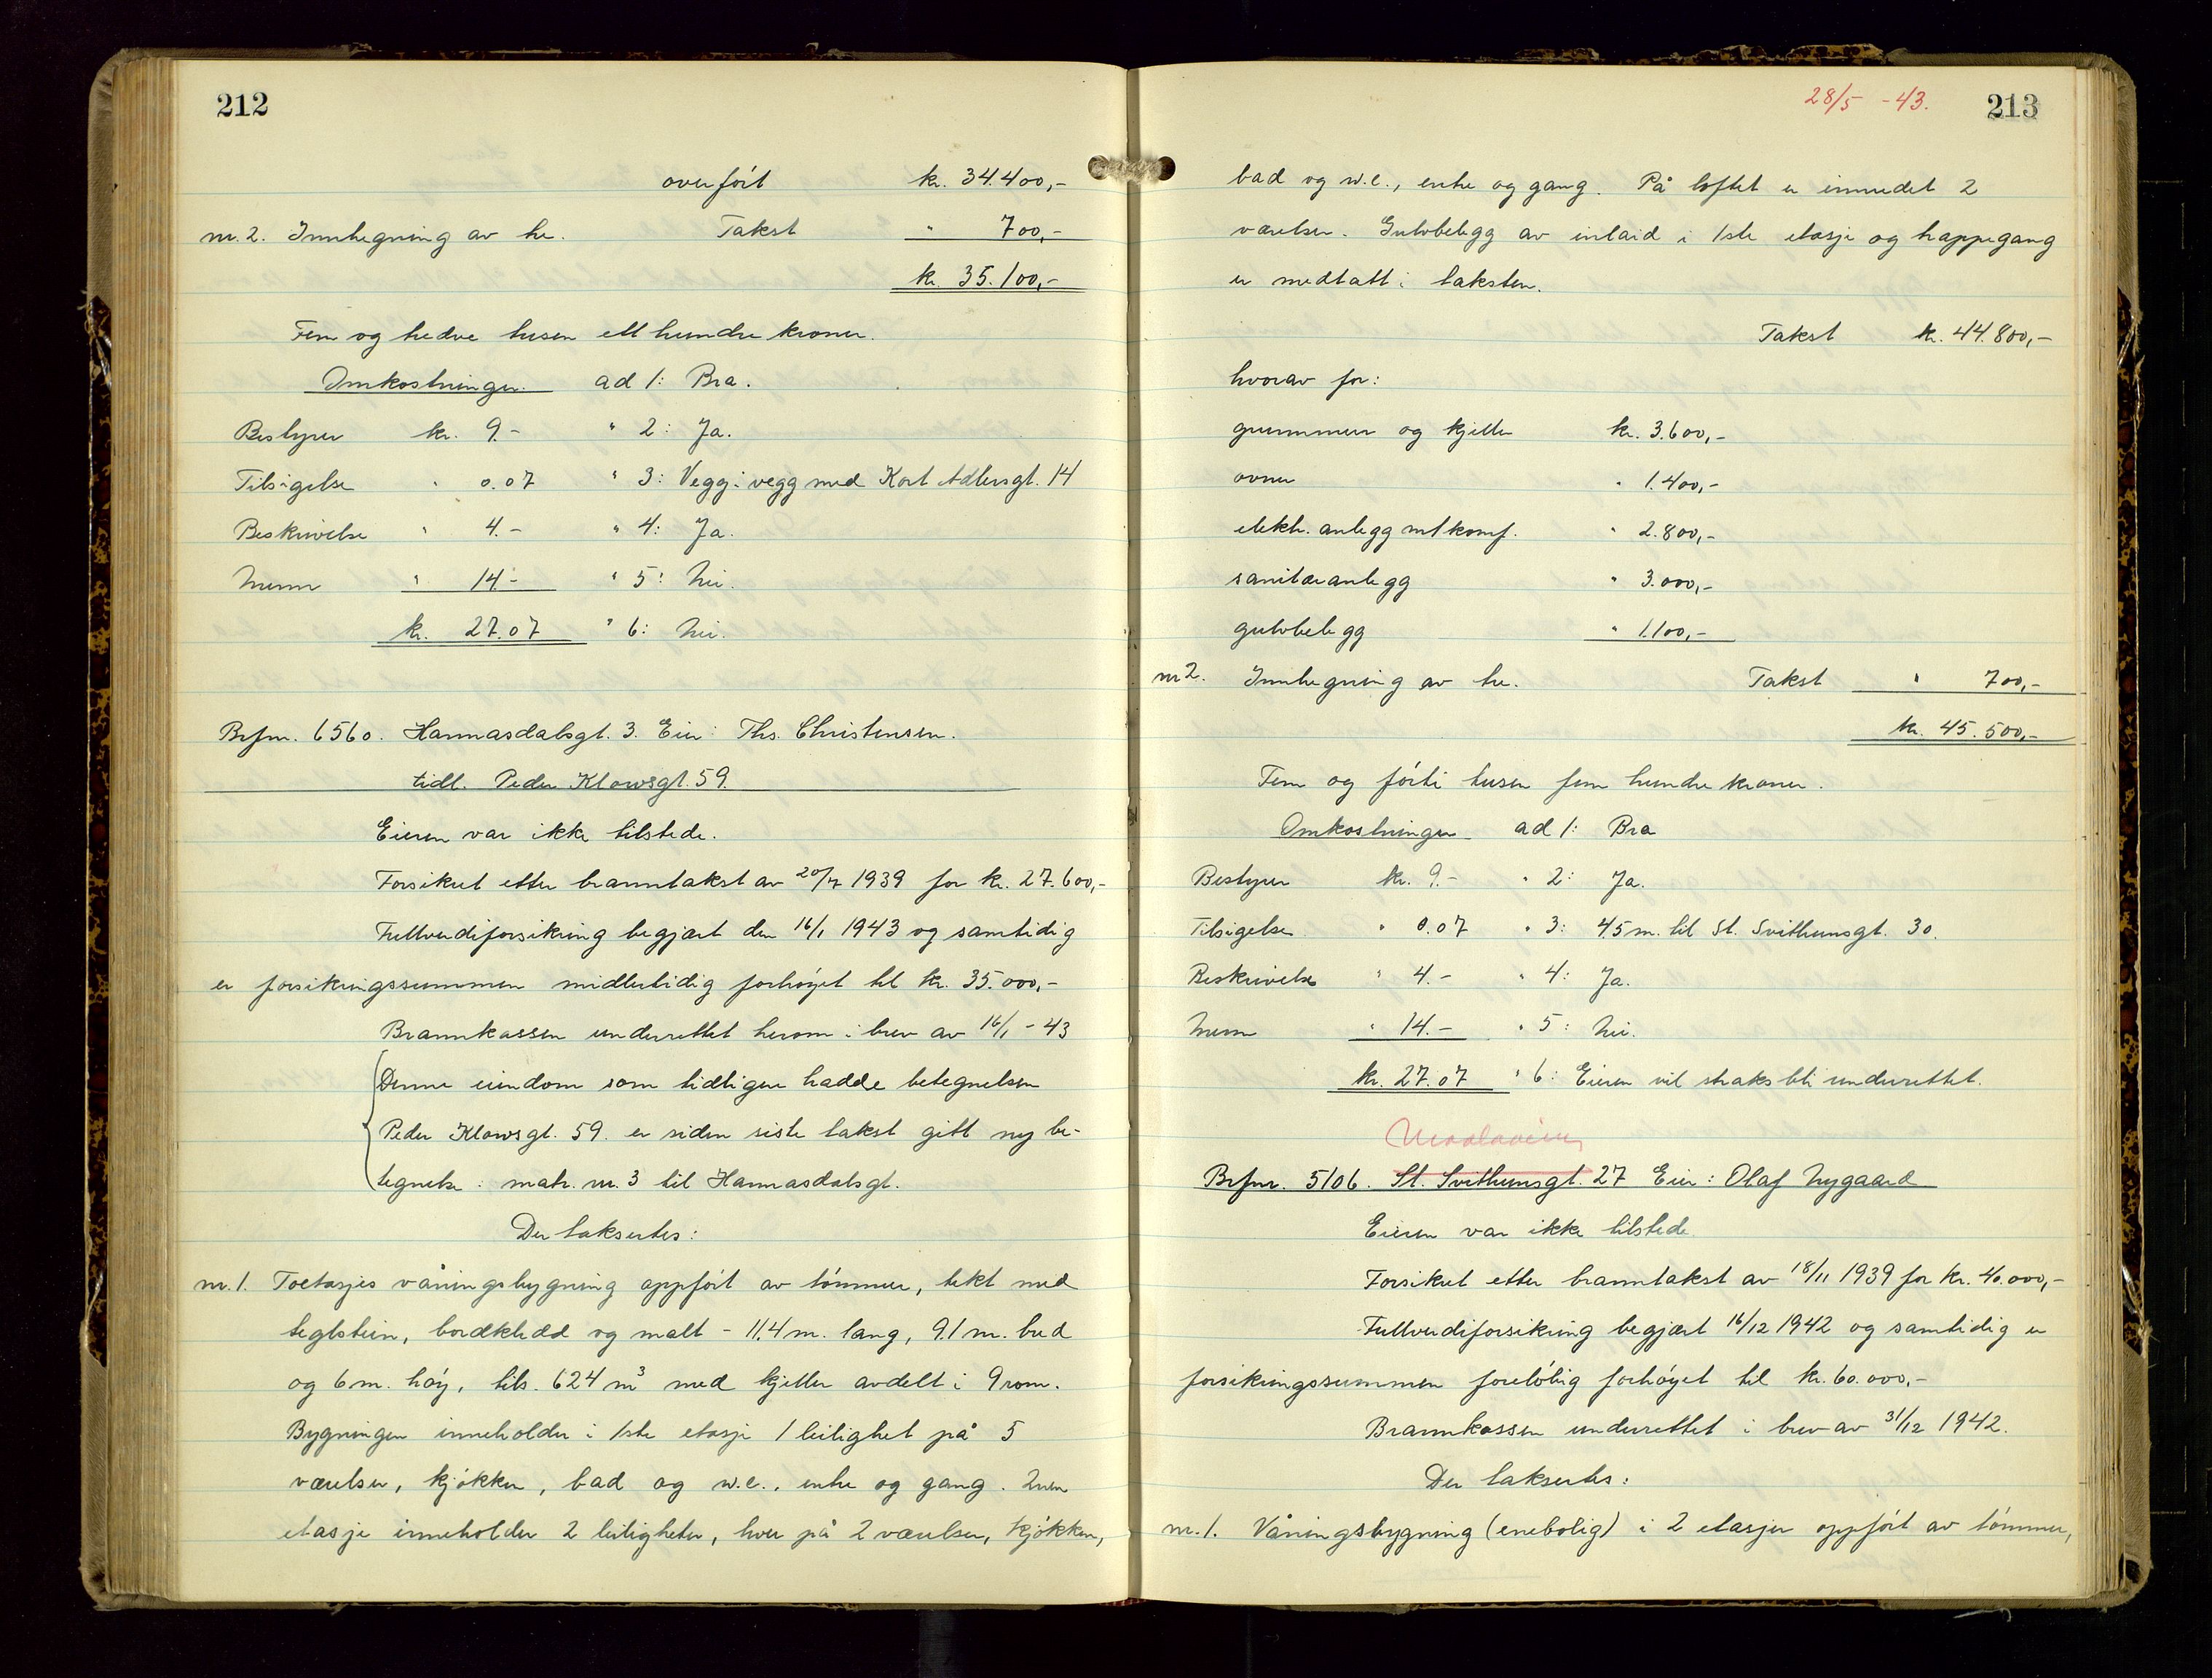 212
overført kr. 34.400,-
nr. 2. Innhegning av tre. Takst " 700,-
kr. 35.100,-
Fem og tredve tusen ett hundre kroner.
Omkostninger. ad 1: Bra.
Bestyrer kr. 9.- " 2: Ja.
Tilsigelse " 0.07 " 3: Vegg i vegg med Kort Adlersgt. 14
Beskrivelse " 4.- " 4: Ja.
Menn " 14.- " 5: Nei.
kr. 27.07 " 6: Nei.
Brfnr. 6560. Hannasdalsgt. 3. Eier: Ths. Christensen.
tidl. Peder Klowsgt. 59.
Eieren var ikke tilstede.
Forsikret etter branntakst av 20/7 1939 for kr. 27.600,-
Fullverdiforsikring begjært den 16/1 1943 og samtidig
er forsikringssummen midlertidig forhøyet til kr. 35.000,-
Brannkassen underrettet herom i brev av 16/1 - 43
Denne eiendom som tidligere hadde betegnelsen
Peder Klowsgt. 59. er siden siste takst gitt ny be-
tegnelse: matr. nr. 3 til Hannasdalsgt.
Der taksertes:
nr. 1. Toetasjes våningsbygning oppført av tømmer, tekt med
teglstein, bordkledd og malt - 11,4 m. lang, 9.1 m. bred
og 6 m. høy, tils. 624 m³ med kjeller avdelt i 9 rom.
Bygningen inneholder i 1ste etasje 1 leilighet på 5
værelser, kjøkken, bad og w.c., entre og gang. 2nen
etasje inneholder 2 leiligheter, hver på 2 værelser, kjøkken,
28/5 - 43.
213
bad og w.c., entre og gang. På loftet er innredet 2
værelser. Gulvbelegg av inlaid i 1ste etasje og trappegang
er medtatt i taksten.
Takst kr. 44.800,-
hvorav for:
grunnmur og kjeller kr. 3.600,-
ovner " 1.400,-
elektr. anlegg m/komf. " 2.800,-
sanitæranlegg " 3.000,-
gulvbelegg " 1.100,-
nr 2. Innhegning av tre. Takst " 700,-
kr. 45.500,-
Fem og førti tusen fem hundre kroner.
Omkostninger ad 1: Bra
Bestyrer kr. 9.- " 2: Ja.
Tilsigelse " 0.07 " 3: 4.5 m. til St. Svithunsgt. 30.
Beskrivelse " 4.- " 4: Ja.
Menn " 14.- " 5: Nei.
kr. 27.07 " 6: Eieren vil straks bli underrettet.
Brfnr. 5106. St. Svithunsgt. 27 Eier: Olaf Nygaard
Eieren var ikke tilstede
Forsikret etter branntakst av 18/11 1939 for kr. 40.000,-
Fullverdiforsikring begjært 16/12 1942 og samtidig er
forsikringssummen foreløbig forhøyet til kr. 60.000,-
Brannkassen underrettet i brev av 31/12 1942.
Der taksertes:
nr. 1. Våningsbygning (enebolig) i 2 etasjer oppført av tømmer,